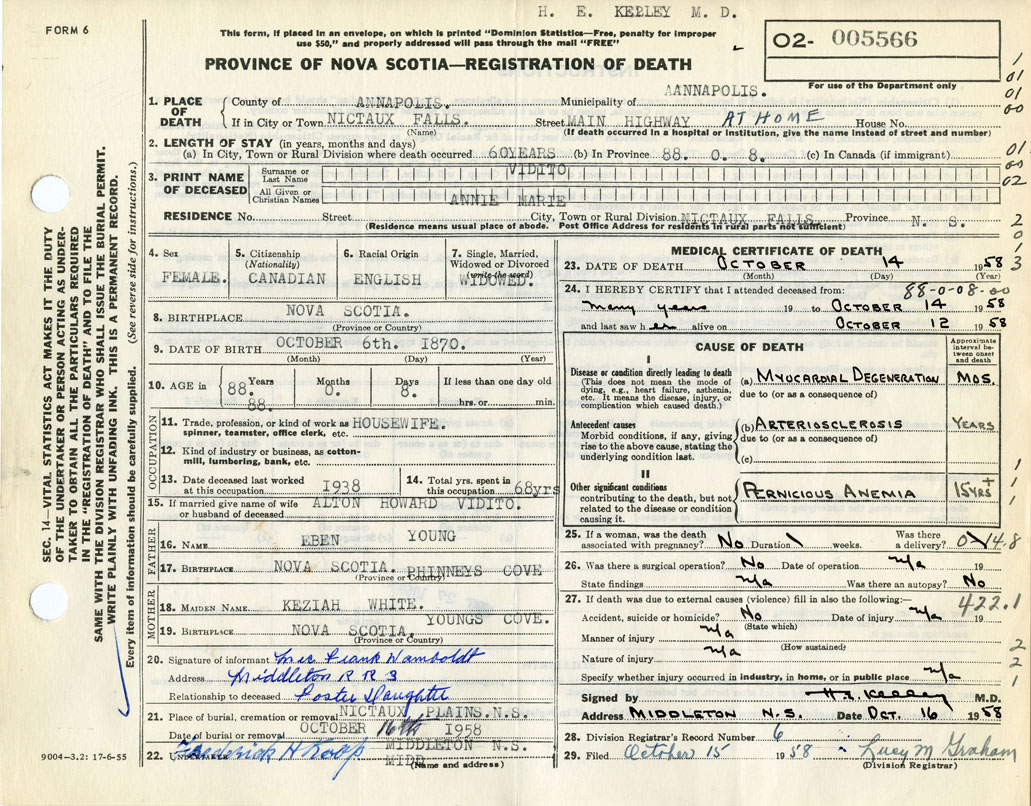 H. E. KELLEY M. D.
FORM 6
This form, if placed in an envelope, on which is printed "Dominion Statistics—Free, penalty for improper
use $50," and properly addressed will pass through the mail "FREE"
PROVINCE OF NOVA SCOTIA—REGISTRATION OF DEATH
O2- 005566
For use of the Department only
1. PLACE OF DEATH { County of ANNAPOLIS. Municipality of AANNAPOLIS.
If in City or Town NICTAUX FALLS. Street MAIN HIGHWAY AT HOME House No.
(Name) (If death occurred in a hospital or institution, give the name instead of street and number)
2. LENGTH OF STAY (in years, months and days)
(a) In City, Town or Rural Division where death occurred 60YEARS (b) In Province 88. 0. 8. (c) In Canada (if immigrant)
3. PRINT NAME OF DECEASED { Surname or Last Name VIDITO
All Given or Christian Names ANNIE MARIE
RESIDENCE No. Street City, Town or Rural Division NICTAUX FALLS. Province N. S.
(Residence means usual place of abode. Post Office Address for residents in rural parts not sufficient)
4. Sex FEMALE.
5. Citizenship (Nationality) CANADIAN
6. Racial Origin ENGLISH
7. Single, Married, Widowed or Divorced (write the word) WIDOWED.
8. BIRTHPLACE NOVA SCOTIA.
(Province or Country)
9. DATE OF BIRTH OCTOBER 6th. 1870.
(Month) (Day) (Year)
10. AGE in { 88. Years 88. Months 0. Days 8. If less than one day old
hrs. or min.
OCCUPATION
11. Trade, profession, or kind of work as spinner, teamster, office clerk, etc. HOUSEWIFE.
12. Kind of industry or business, as cotton-mill, lumbering, bank, etc.
13. Date deceased last worked at this occupation 1938
14. Total yrs. spent in this occupation 68yrs
15. If married give name of wife or husband of deceased ALTON HOWARD VIDITO.
FATHER
16. NAME EBEN YOUNG
17. BIRTHPLACE NOVA SCOTIA. PHINNEYS COVE
(Province or Country)
MOTHER
18. MAIDEN NAME KEZIAH WHITE.
19. BIRTHPLACE NOVA SCOTIA. YOUNGS COVE.
(Province or Country)
20. Signature of informant Mrs Frank Wamboldt
Address Middleton R R 3
Relationship to deceased Foster Daughter
21. Place of burial, cremation or removal NICTAUX PLAINS.N.S.
Date of burial or removal OCTOBER 16th 1958
22. Undertaker Frederick H Roop MIDDLETON N.S.
MIDD
(Name and address)
MEDICAL CERTIFICATE OF DEATH
23. DATE OF DEATH OCTOBER 14 1958
(Month) (Day) (Year)
24. I HEREBY CERTIFY that I attended deceased from: 88-0-08-00
many years 19 to OCTOBER 14 1958
and last saw her alive on OCTOBER 12 1958
CAUSE OF DEATH
Approximate interval between onset and death
I
Disease or condition directly leading to death
(This does not mean the mode of dying, e.g., heart failure, asthenia, etc. It means the disease, injury, or complication which caused death.)
(a) MYOCARDIAL DEGENERATION MOS.
due to (or as a consequence of)
Antecedent causes
Morbid conditions, if any, giving rise to the above cause, stating the underlying condition last.
(b) ARTERIOSCLEROSIS YEARS
due to (or as a consequence of)
(c)
II
Other significant conditions
contributing to the death, but not related to the disease or condition causing it.
PERNICIOUS ANEMIA 15 YRS +
25. If a woman, was the death associated with pregnancy? No Duration \ weeks. Was there a delivery? 0 14.8
26. Was there a surgical operation? No Date of operation n/a 19
State findings n/a Was there an autopsy? No
27. If death was due to external causes (violence) fill in also the following:— 422.1
Accident, suicide or homicide? No Date of injury n/a 19
(State which)
Manner of injury n/a
(How sustained)
Nature of injury n/a
Specify whether injury occurred in industry, in home, or in public place n/a
Signed by H. E. Kelley M.D.
Address MIDDLETON N.S. Date OCT. 16 1958
28. Division Registrar's Record Number 6
29. Filed October 15 1958. Lucy M Graham
(Division Registrar)
1
01
01
00
01
00
02
2
0
1
3
1
1
1
2
2
1
SEC. 14—VITAL STATISTICS ACT MAKES IT THE DUTY
OF THE UNDERTAKER OR PERSON ACTING AS UNDER-
TAKER TO OBTAIN ALL THE PARTICULARS REQUIRED
IN THE "REGISTRATION OF DEATH" AND TO FILE THE
SAME WITH THE DIVISION REGISTRAR WHO SHALL ISSUE THE BURIAL PERMIT.
WRITE PLAINLY WITH UNFADING INK. THIS IS A PERMANENT RECORD.
Every item of information should be carefully supplied. (See reverse side for instructions.)
9004-3.2: 17-6-55